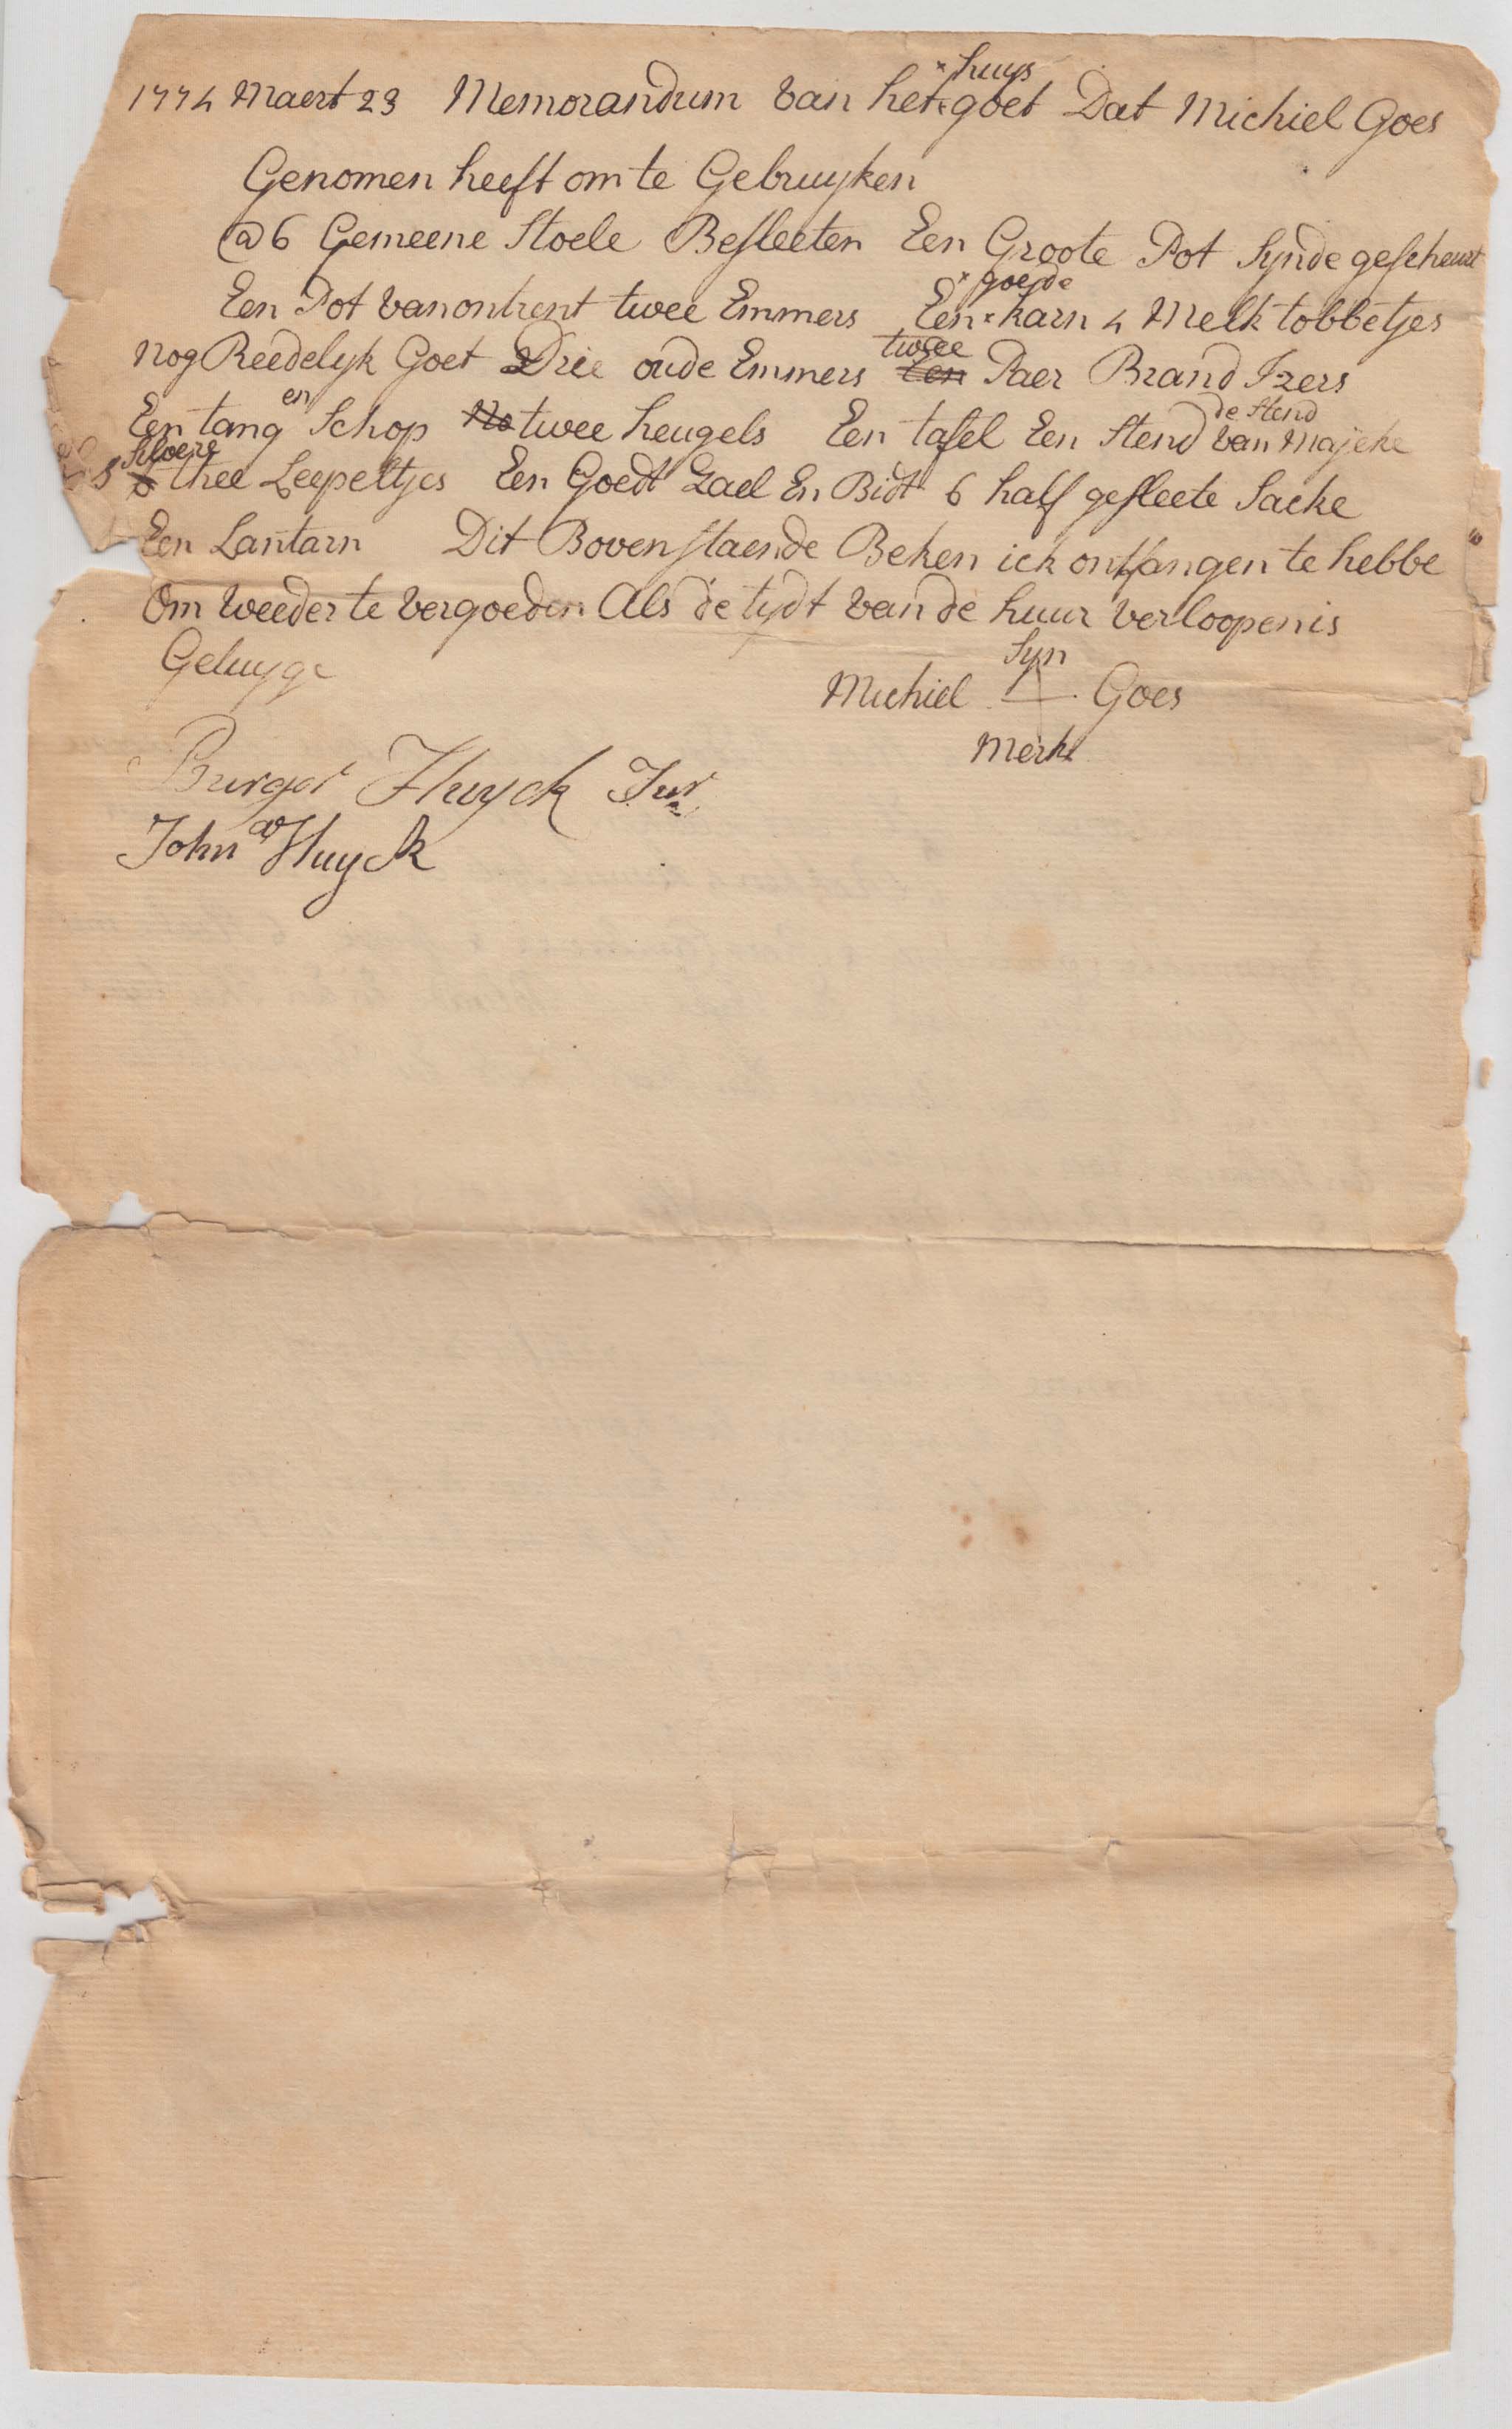 1774 Maert 23 Memorandum van het × huys goet Dat Michiel Goes
Genomen heeft om te Gebruyken
@ 6 Gemeene Stoele Besleeten Een Groote Pot Synde gescheurt
Een Pot van ontrent twee Emmers Een × goede karn 4 Melk tobbetjes
nog Reedelyk Goet Drie oude Emmers twee Een Paer Brand Izers
Een tang en Schop No twee heugels Een tafel Een Stend de Stend van Majeke
8 Silvere thee Leepeltjes Een Goedt Zael En Bidt 6 half gesleete Sacke
Een Lantarn Dit Bovenstaende Beken ick ontfangen te hebbe
Om weeder te vergoeden Als de tydt van de huur verloopen is
Getuyge
Syn
Michiel + Goes
Merk
Burger Huyck Jur
John Huyck